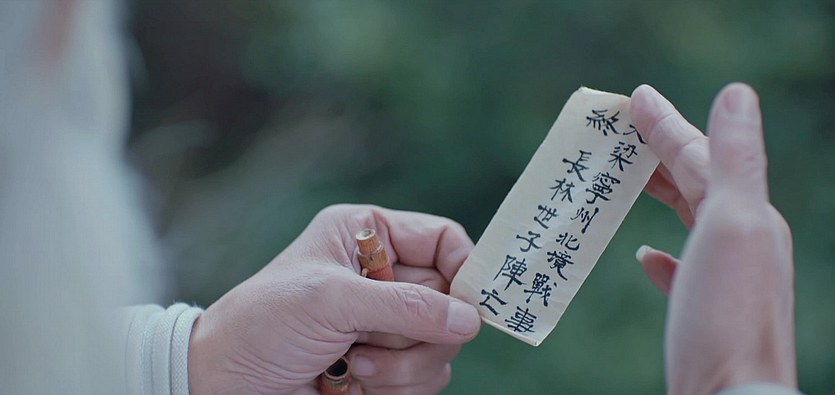 大梁寧州北境戰事
終 長林世子陣亡